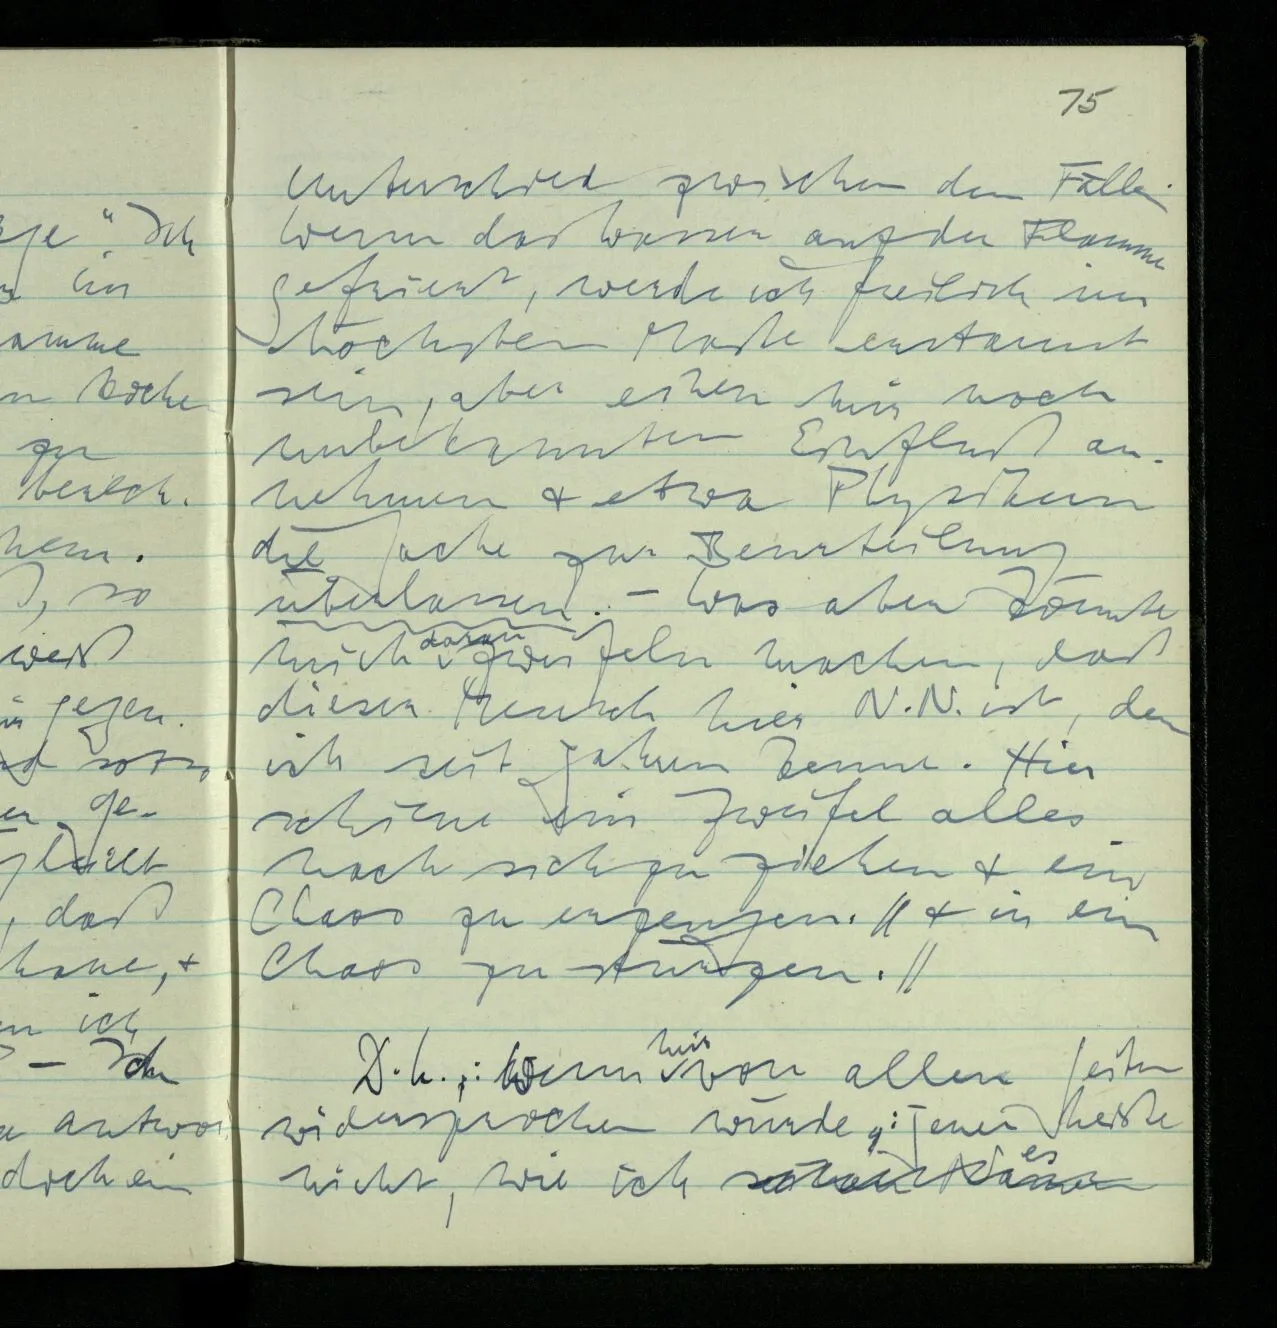 75
Unterschied zwischen den Fällen.
Wenn das Wasser auf der Flamme
gefriert, werde ich freilich im
höchsten Maße erstaunt
sein, aber einen mir noch
unbekannten Einfluß an-
nehmen & etwa Physikern
die Sache zur Beurteilung
überlassen. – Was aber könnte
mich daran zweifeln machen, daß
dieser Mensch hier N.N. ist, den
ich seit Jahren kenne. Hier
schiene ein Zweifel alles
nach sich zu ziehen & ein
Chaos zu erzeugen. // & in ein
Chaos zu stürzen. //
D.h.: Wenn mir von allen Seiten
widersprochen würde: Jener heiße
nicht, wie ich es
age". Ich
im
amme
n Koche
zu
besch.
hem.
ß, so
weiß
gegen.
en ge-
glückt
, daß
habe, &
n ich
– Ich
antwor
doch ein